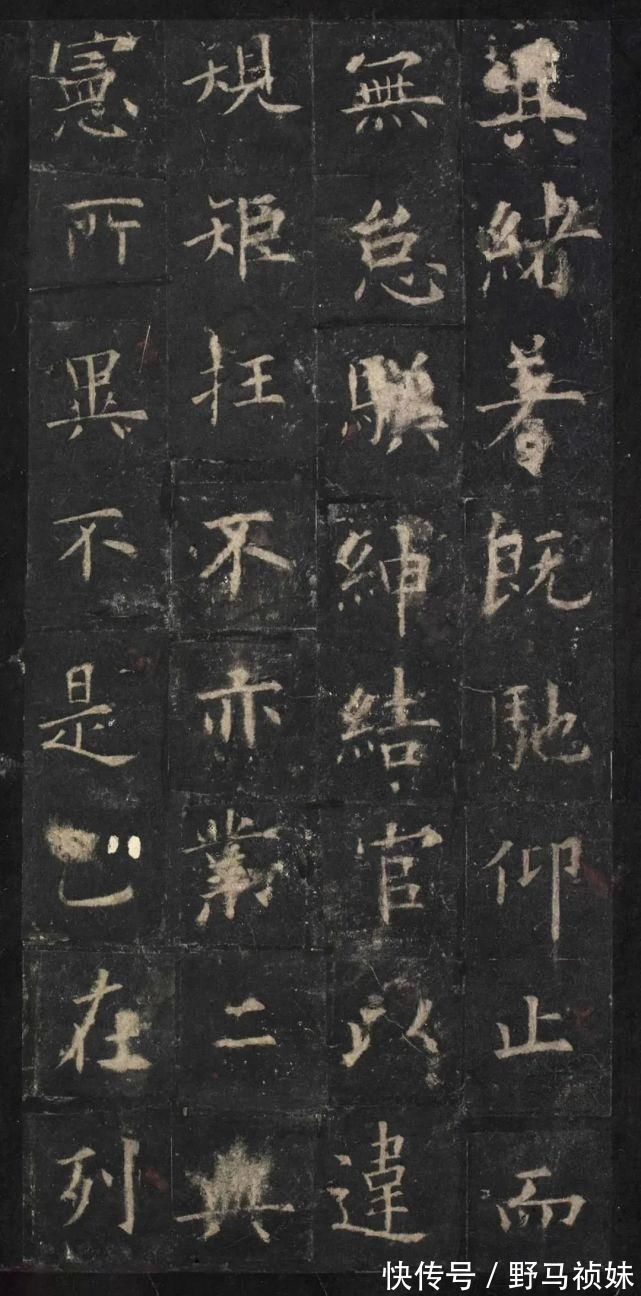 其緒著既馳仰止而
無怠紳結官以違
規矩抂不亦業二典
憲所異不是在列
快传号 / 野马祯妹